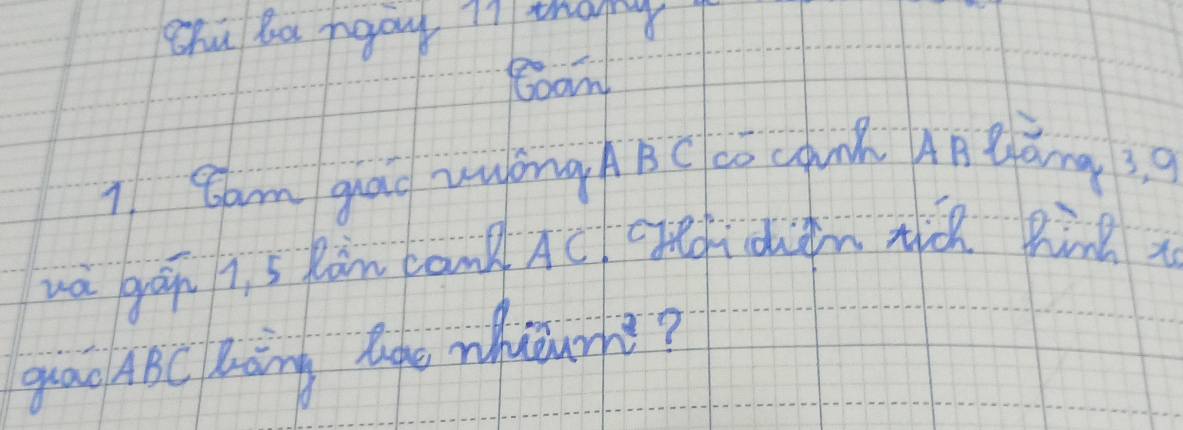 Thứ ba ngày 11 tháng
Toán
1. Tam giác vuông ABC có cạnh AB bằng 3,9
và gấp 1,5 lần cạnh AC. Hỏi diện tích hình
giác ABC bằng bao nhiêu m²?